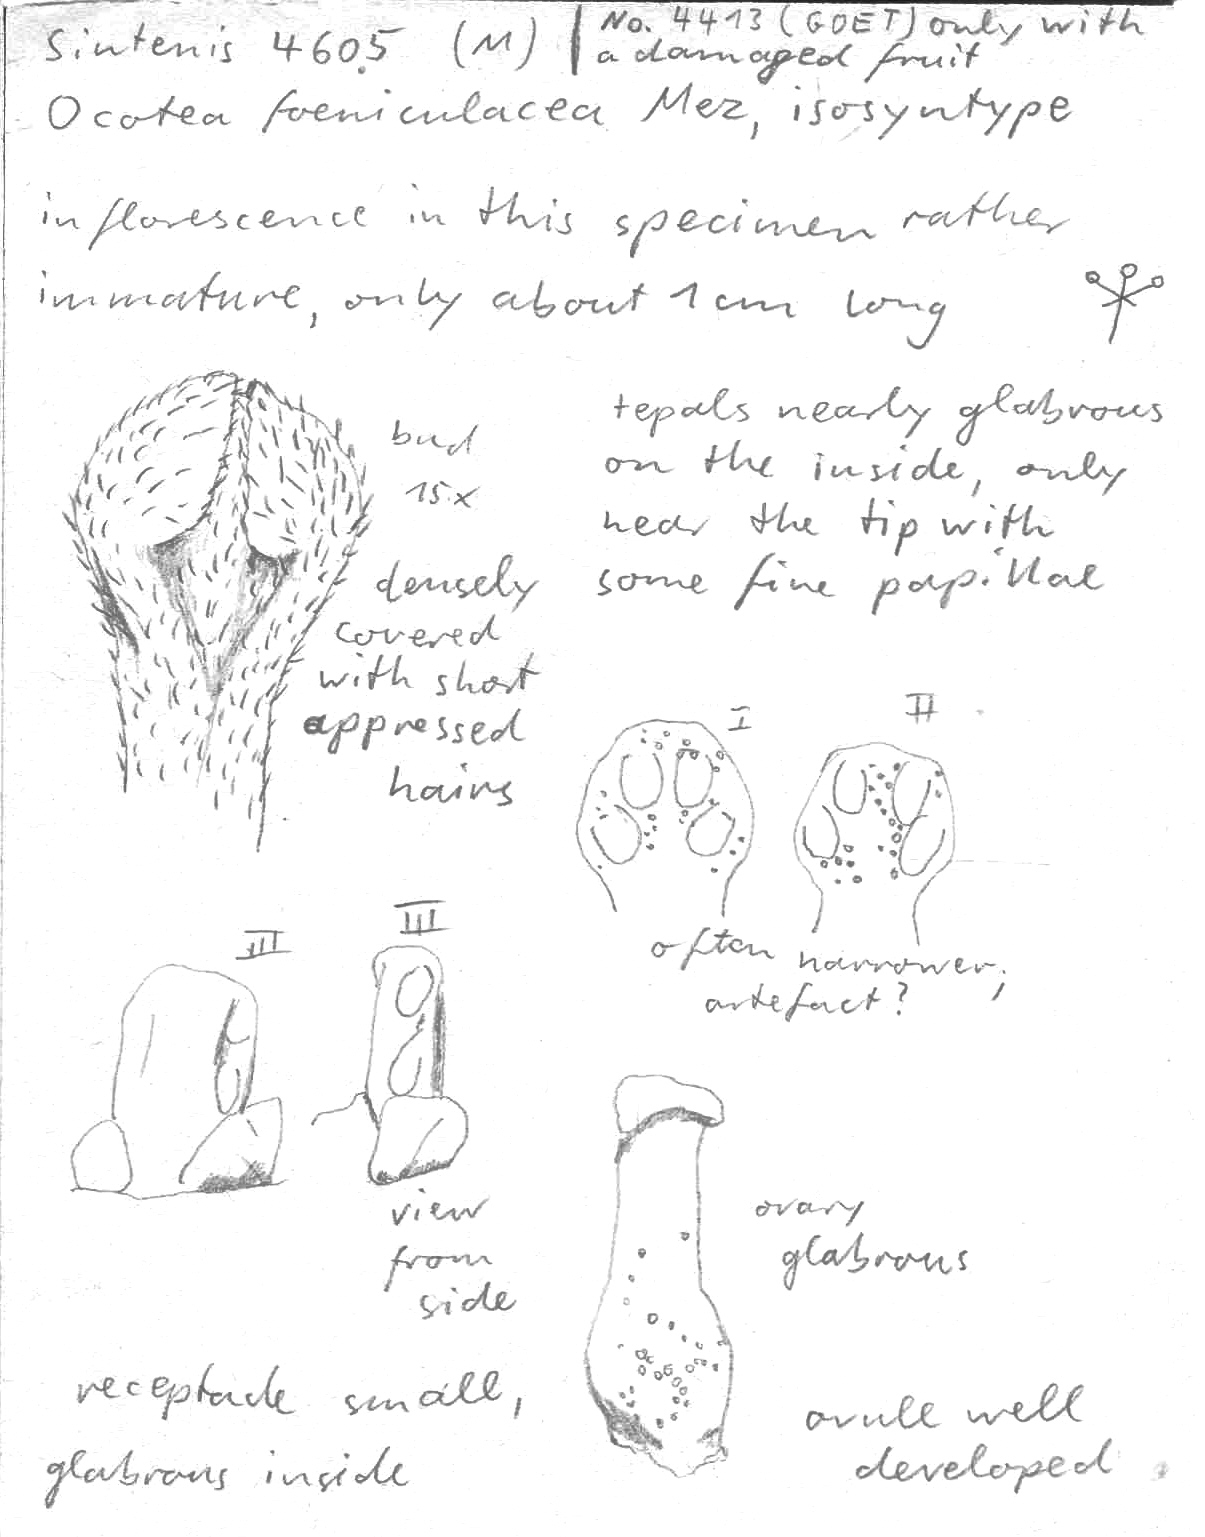 Sintenis 4605 (M)
No. 4413 (GOET) only with
a damaged fruit
Ocotea foeniculacea Mez, isosyntype
inflorescence in this specimen rather
immature, only about 1 cm long
bud
15x
densely
covered
with short
appressed
hairs
tepals nearly glabrous
on the inside, only
near the tip with
some fine papillae
I
II
often narrower,
artefact?
III
III
view
from
side
ovary
glabrous
receptacle small,
glabrous inside
ovule well
developed